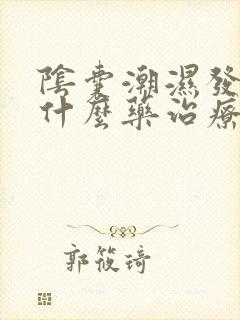 陰囊潮濕發
什麼藥治療
郭筱琦